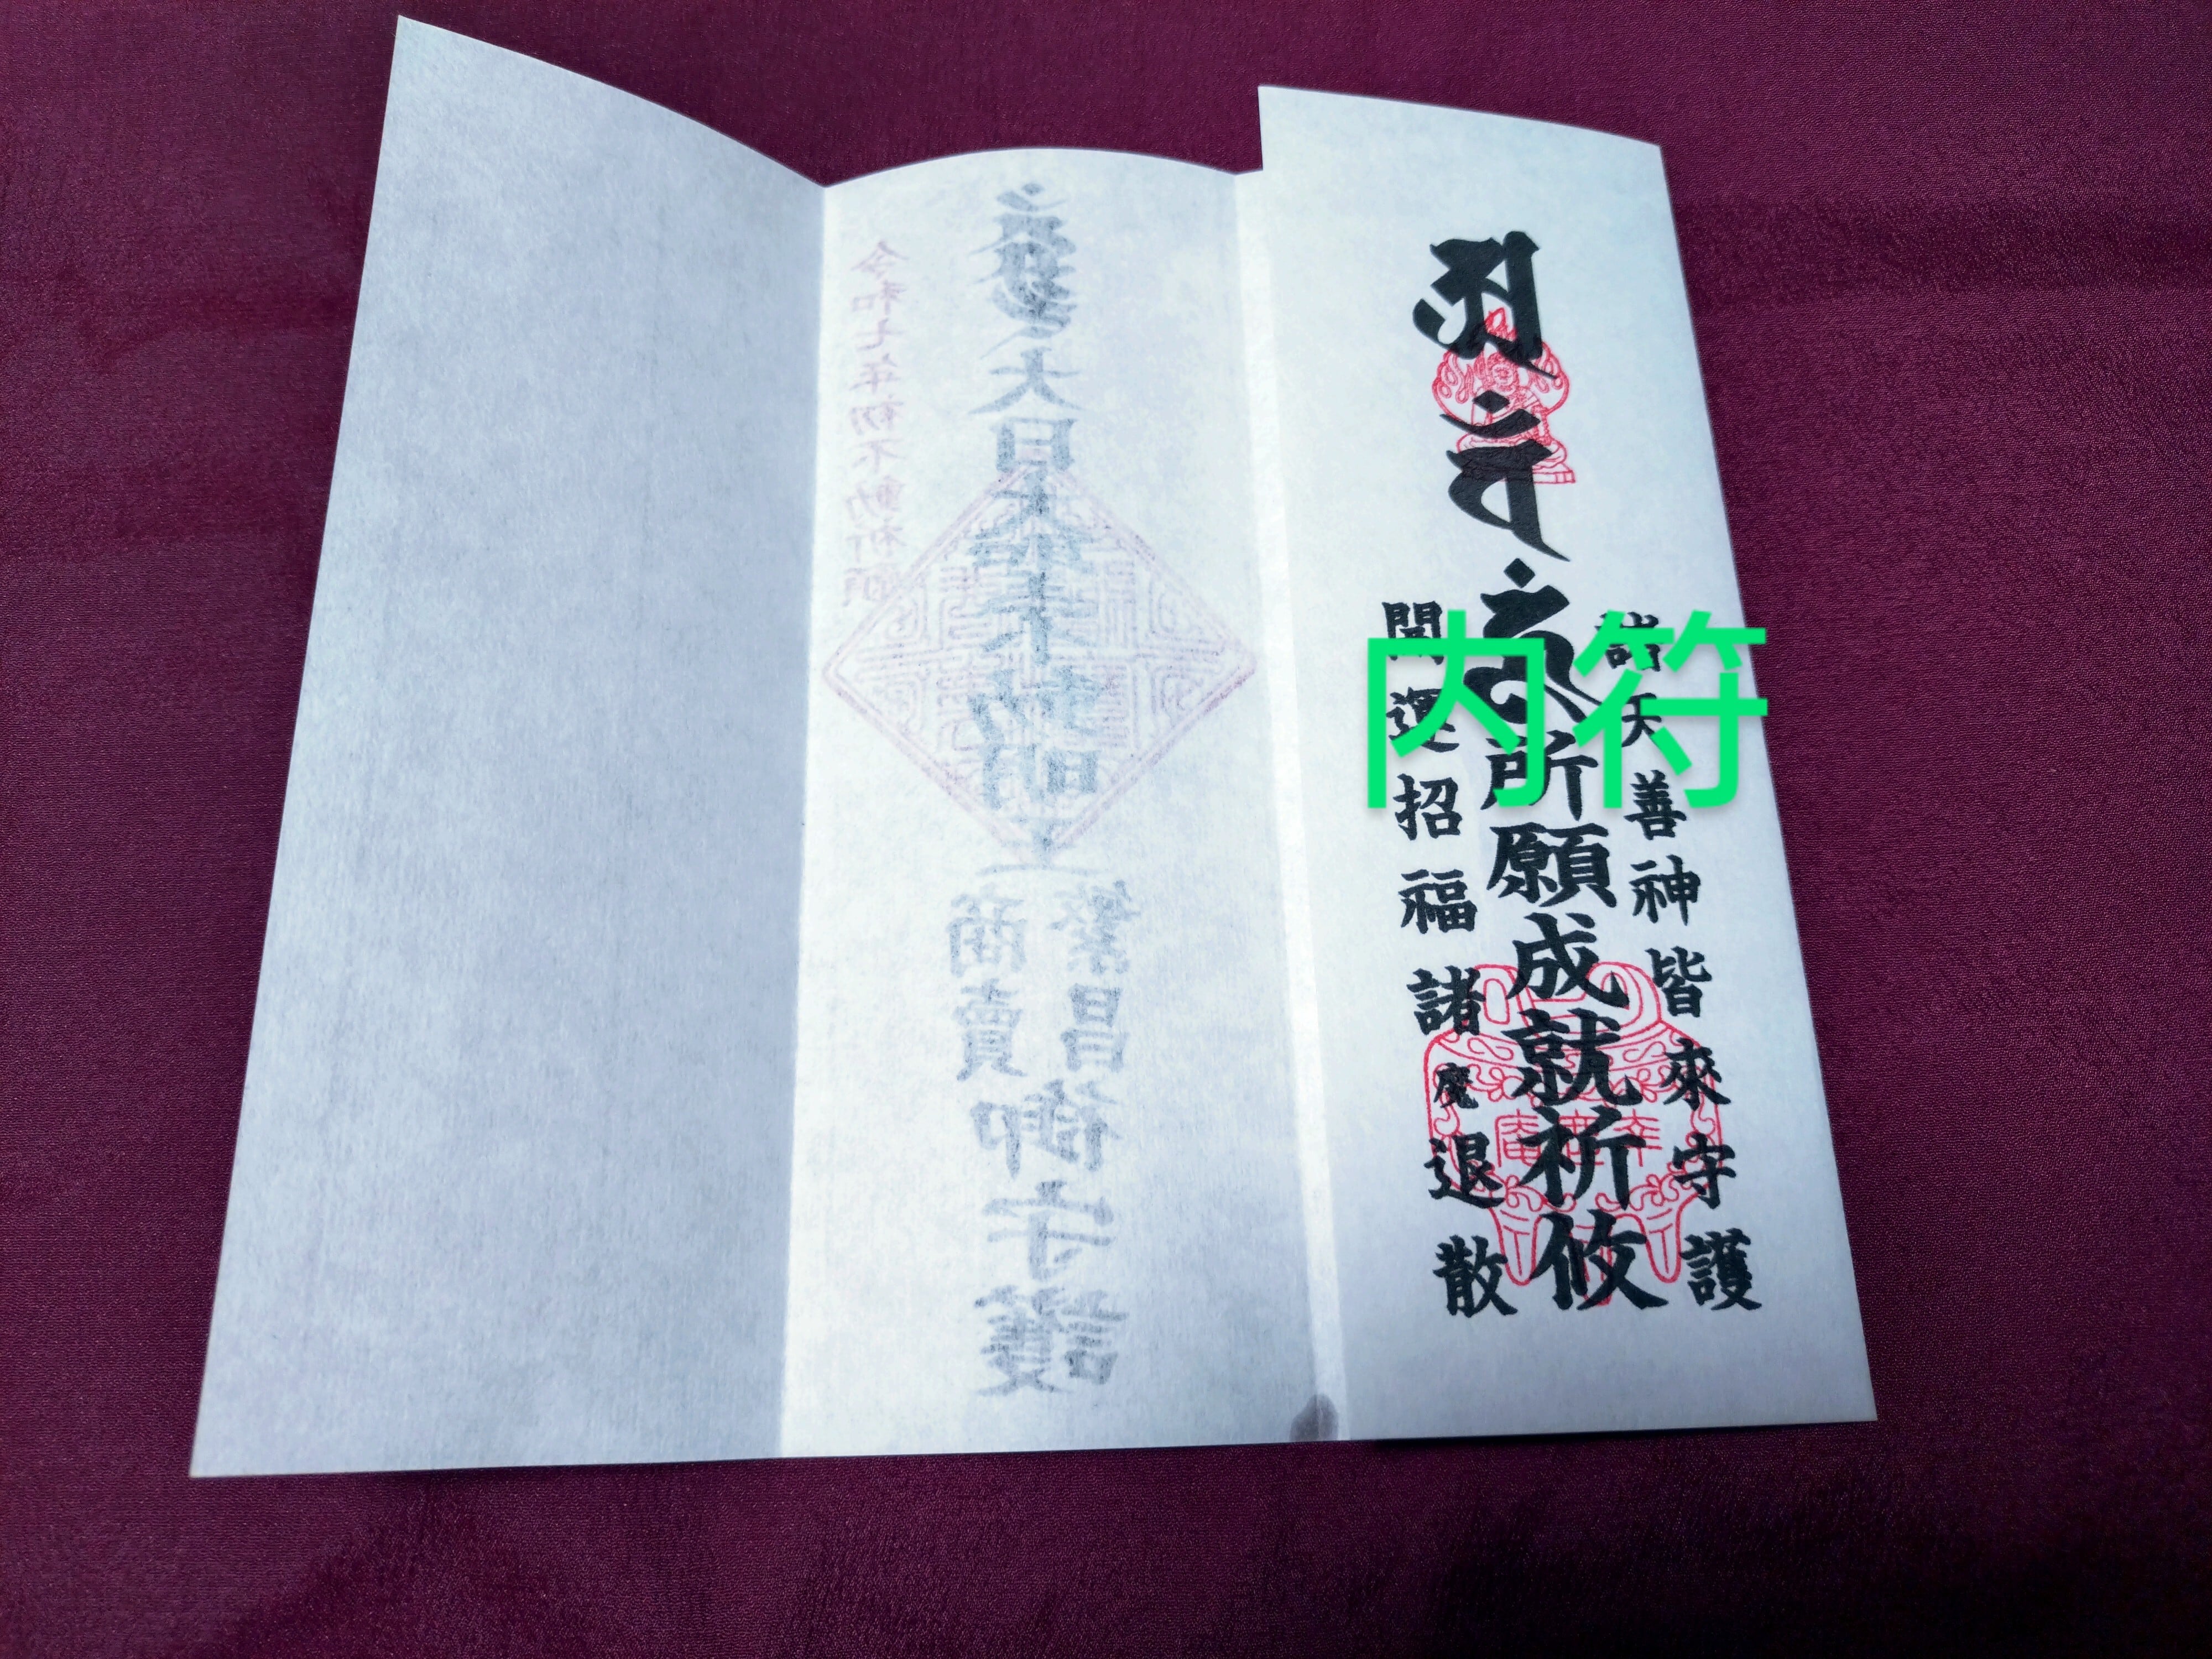 諸天善神皆來守護
所願成就祈攸
開運招福諸魔退散
内符
大日大聖不動明王
商賣
繁昌
御守護
令和七年初不動祈願